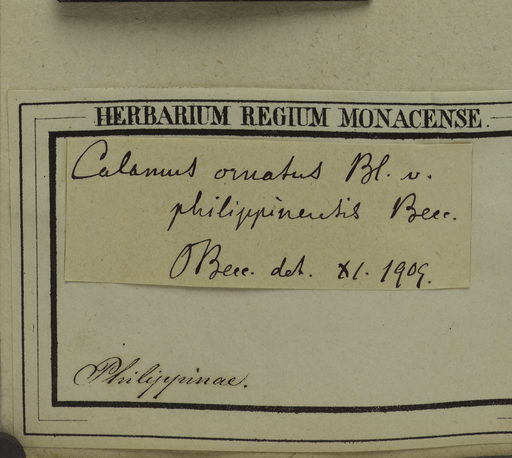 HERBARIUM REGIUM MONACENSE.
Calamus ornatus Bl. v.
philippinensis Becc.
OBecc. det. XI. 1909.
Philippinae.